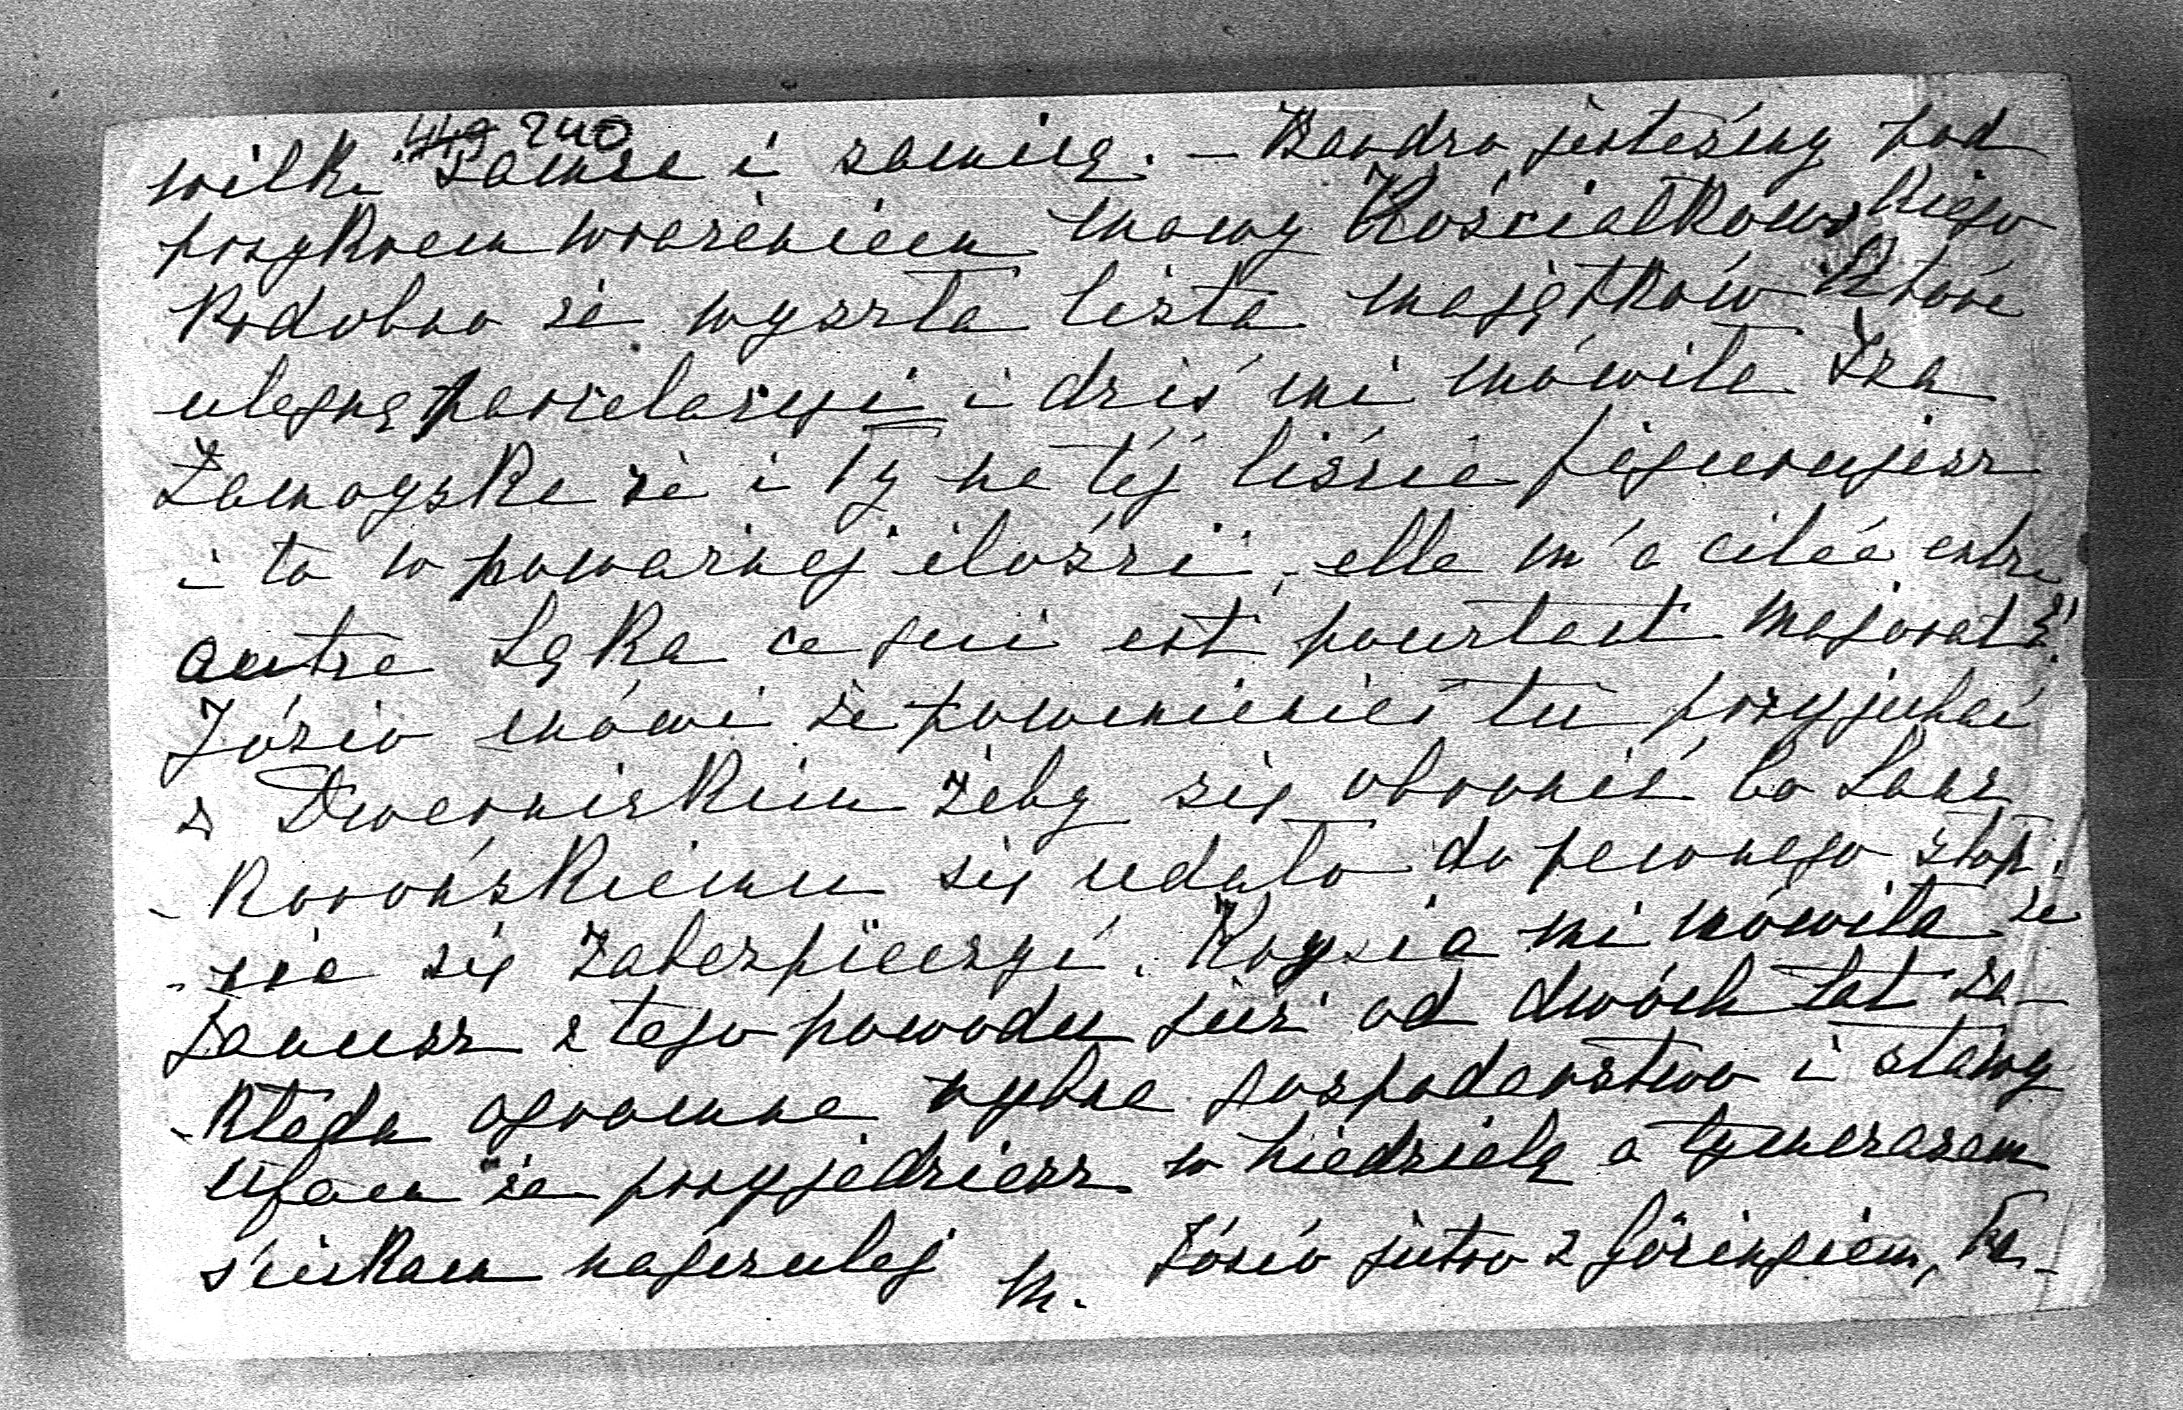 449 240
wilk. samse i samicę. – Bardzo jesteśmy pod
przykrem wrażeniem mowy Kościałkowskiego
Podobno że wyszła lista majątków które
ulegną parcelacyi i dziś mi mówiła Iza
Zamoyska że i Ty na téj liście figurujesz
i to w poważnej ilości, elle m'a citée entre
autre Łąka ce qui est pourtant majorat?!
Józio mówi że powinieneś tu przyjechać
z Dwernickim żeby się obronić bo Lanc
- korońskiemu się udało do pewnego stop.
- nia się zabezpieczyć. Krysia mi mówiła że
Janusz z tego powodu już od dwóch lat za-
- kłada ogromne rybne gospodarstwo i stawy
Ufam że przyjedziesz w niedzielę a tymczasem
ściskam najczulej M. Józio jutro z Göringiem,